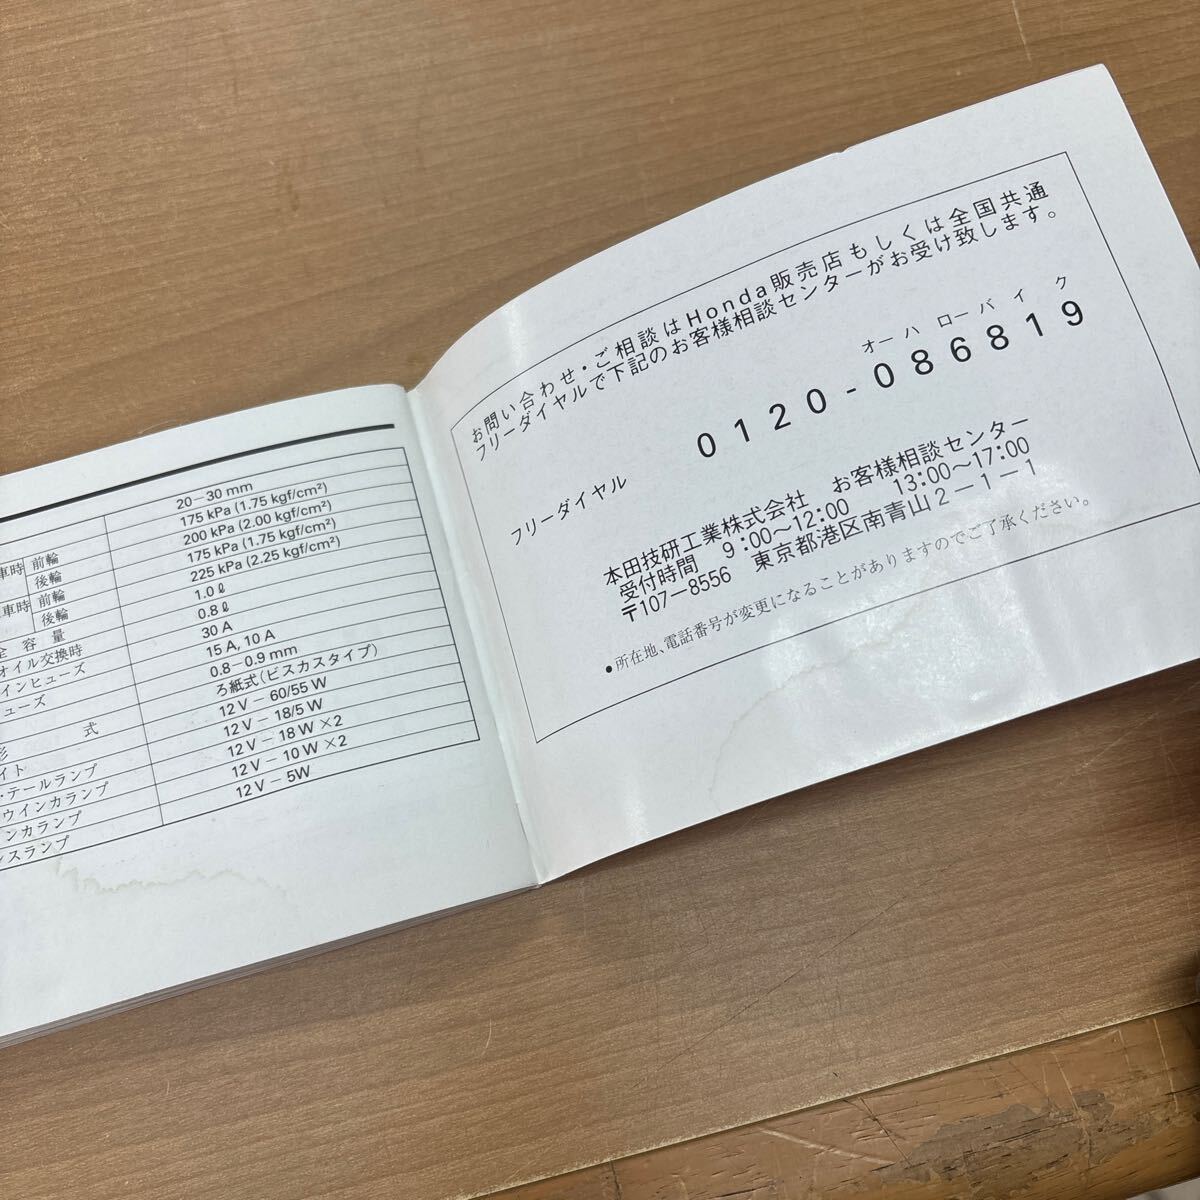 20－30 mm
車時 前輪 175 kPa (1.75 kgf/cm²)
後輪 200 kPa (2.00 kgf/cm²)
車時 前輪 175 kPa (1.75 kgf/cm²)
後輪 225 kPa (2.25 kgf/cm²)
全容量 1.0ℓ
オイル交換時 0.8ℓ
インヒューズ 30 A
ューズ 15 A, 10 A
0.8－0.9 mm
形式 ろ紙式(ビスカスタイプ)
イト 12 V － 60/55 W
・テールランプ 12 V － 18/5 W
ウインカランプ 12 V － 18 W ×2
ンカランプ 12 V － 10W ×2
ンスランプ 12 V－ 5W
お問い合わせ・ご相談はHonda販売店もしくは全国共通
フリーダイヤルで下記のお客様相談センターがお受け致します。
オーハローバイク
フリーダイヤル 0120-086819
本田技研工業株式会社 お客様相談センター
受付時間 9：00～12：00 13：00～17：00
〒107－8556 東京都港区南青山２－１－１
●所在地、電話番号が変更になることがありますのでご了承ください。